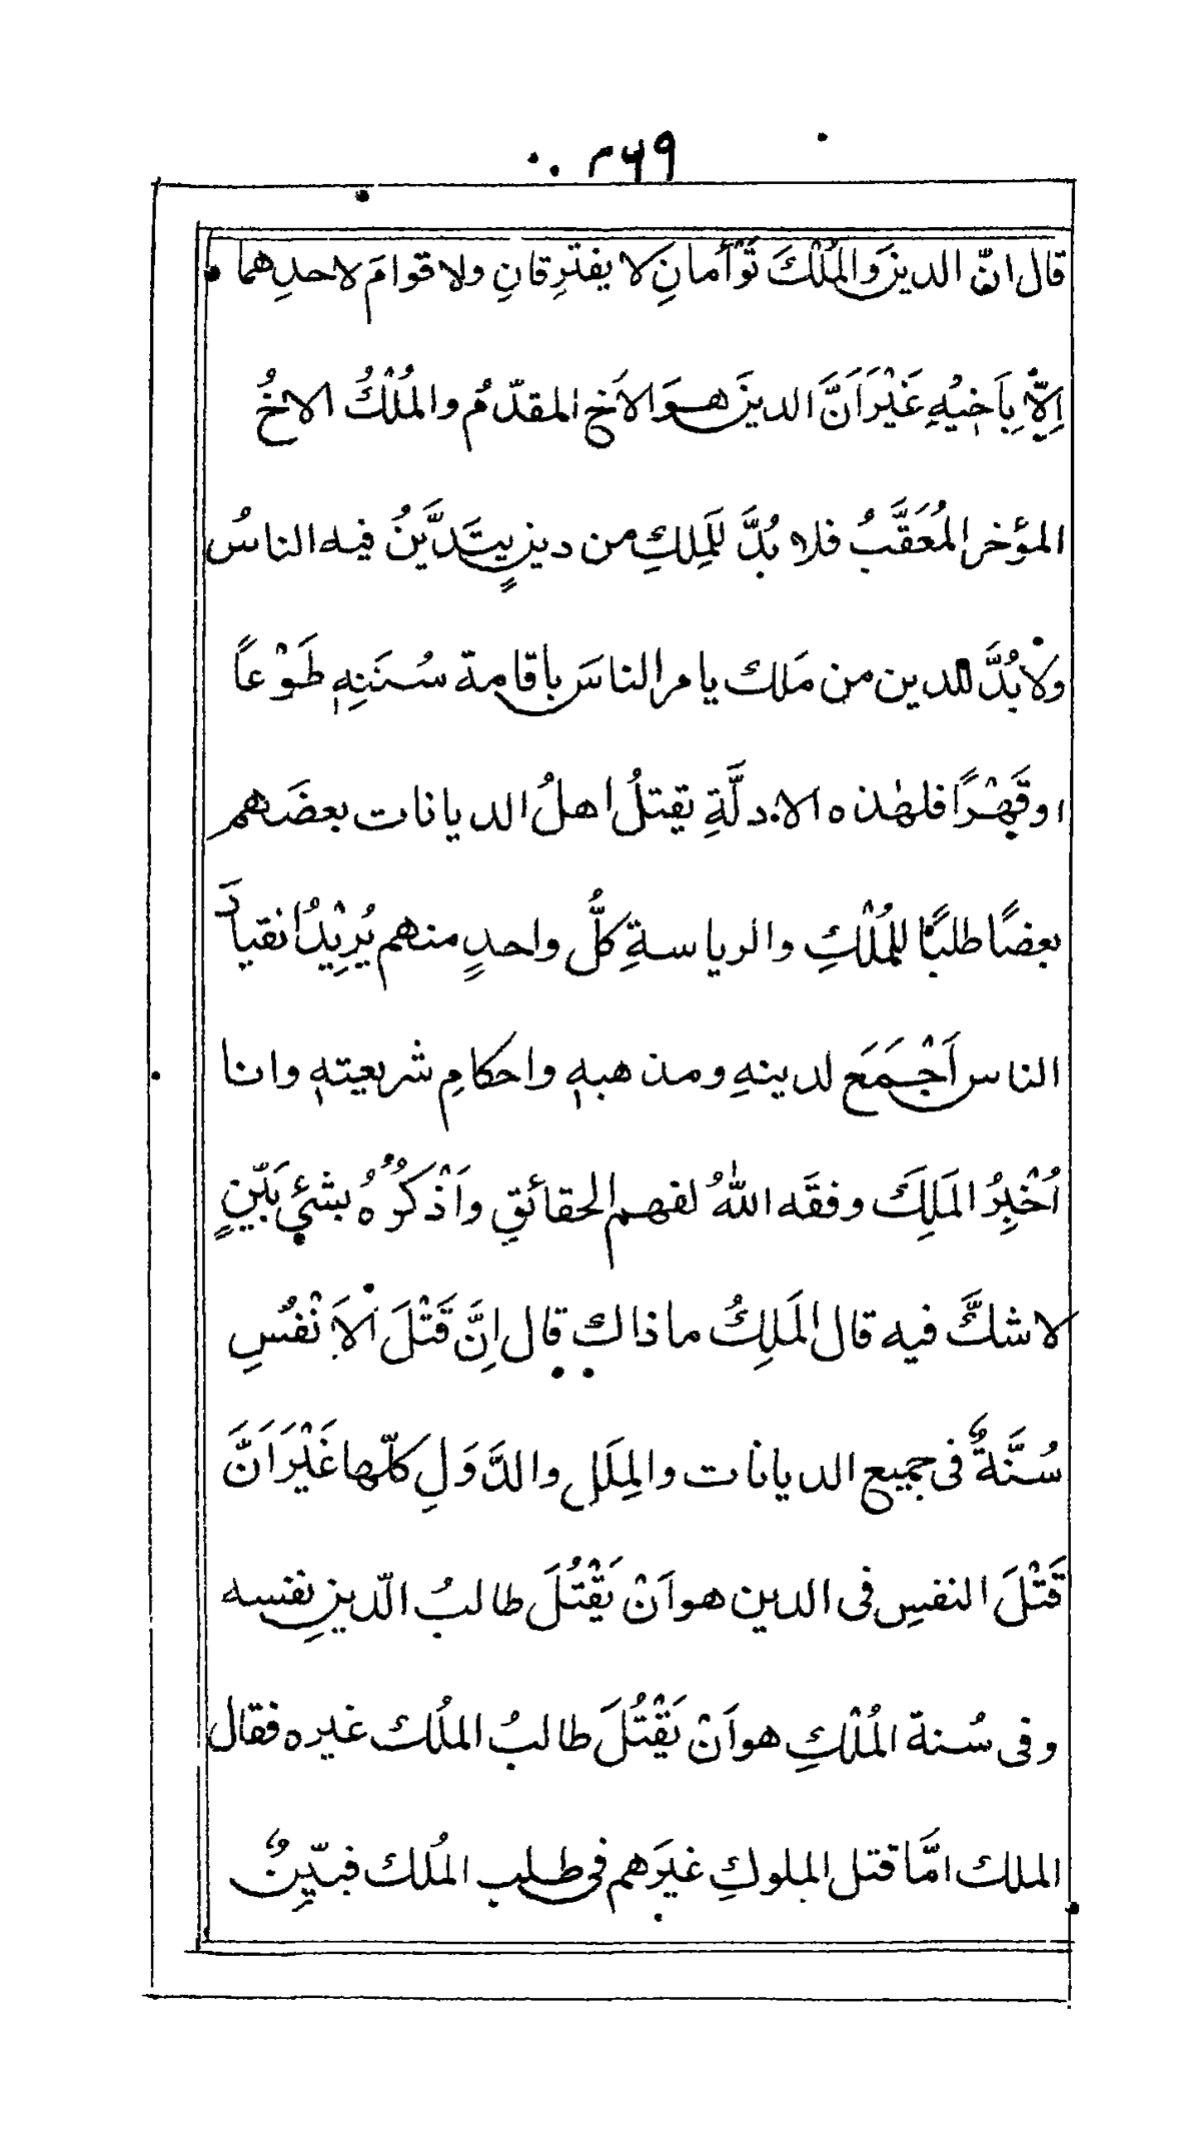 ۲۶۹
قال انّ الدينَ والمُلْكَ تَوْأَمانِ لا يفترِقانِ ولا قوامَ لاحدِهما
اِلّا بِاَخيْهِ غَيْرَ اَنَّ الدينَ هوَ الاَخ المقدّمُ والمُلْكُ الاخُ
المؤخر المُعَقَّبُ فلا بُدَّ للمَلِكِ من دينٍ يتَدَيَّنُ فيه الناسُ
ولا بُدَّ للدين من مَلك يامر الناسَ باقامة سُنَنِهٖ طَوْعاً
او قَهْرًا فلهٰذه الادلَّةِ يقتلُ اهلُ الديانات بعضَهم
بعضًا طلبًا للمُلْكِ والرياسةِ كلُّ واحدٍ منهم يُرِيْدُ انقيادَ
الناس اَجْمَعَ لدينهِ ومذهبهٖ واحكامِ شريعتهٖ وانا
اُخْبِرُ المَلِكَ وفقَه اللهُ لفهم الحقائقِ واَذْكُرُهُ بشئٍ بَيّنٍ
لا شكَّ فيه قال المَلِكُ ما ذاك قال اِنَّ قَتْلَ الاَنْفُسِ
سُنَّةٌ فى جميع الديانات والمِلَلِ والدَّوَلِ كلّها غَيْرَ اَنَّ
قَتْلَ النفسِ فى الدين هو اَنْ يَقْتُلَ طالبُ الدّينِ نفسه
وفى سُنة المُلْكِ هو اَنْ يَقْتُلَ طالبُ المُلك غيره فقال
الملك امَّا قتل الملوكِ غيرَهم فى طلب المُلك فبيّنٌ